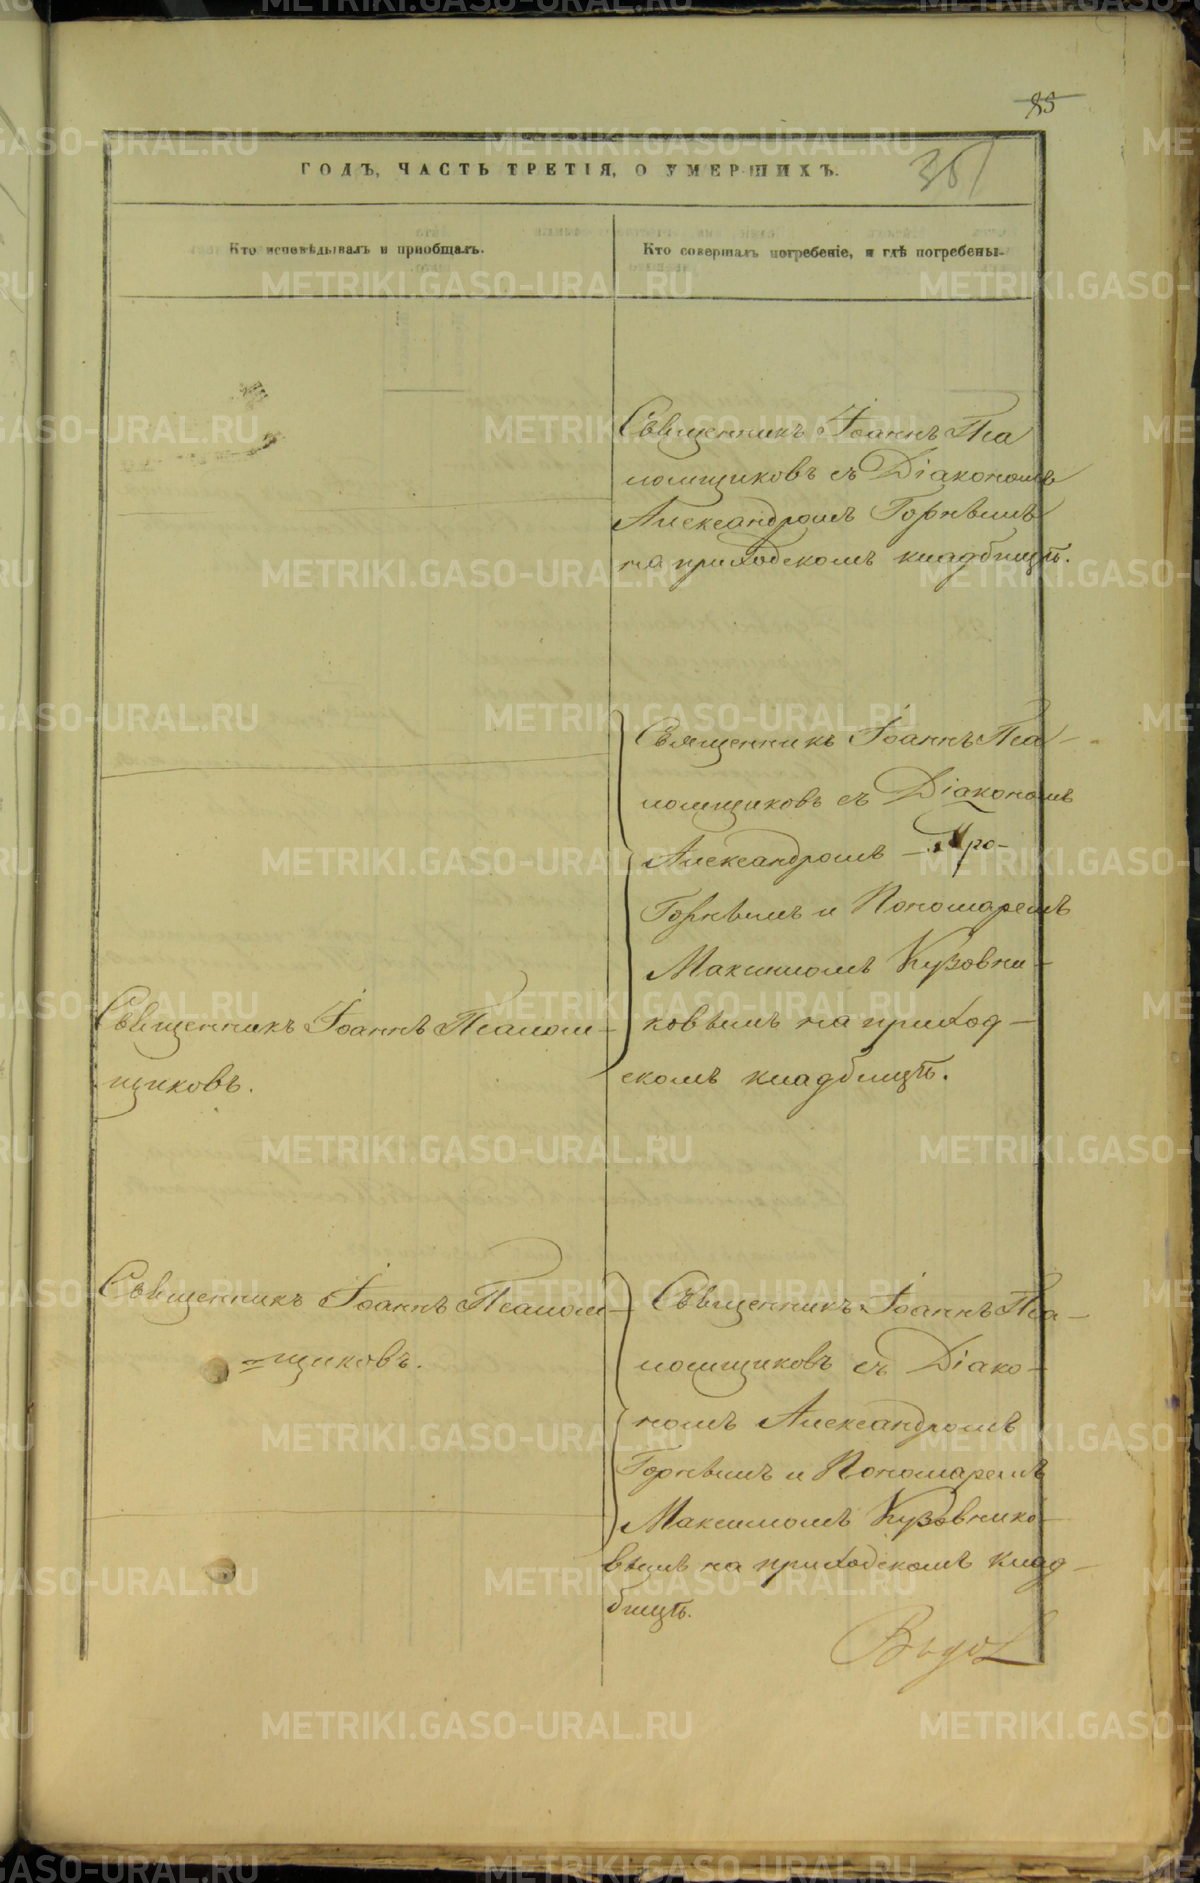 85
ГОДЪ, ЧАСТЬ ТРЕТІЯ, О УМЕРШИХЪ.
351
Кто исповѣдывалъ и пріобщалъ.
Кто совершалъ погребеніе, и гдѣ погребены.
Священникъ Іоаннъ Пса
ломщиковъ съ Діакономъ
Александромъ Горнѣмъ
на приходскомъ кладбищѣ.
Священникъ Іоаннъ Пса-
ломщиковъ съ Діакономъ
Александромъ
Горнѣмъ и Пономаремъ
Максимомъ Кузовни-
ковымъ на приход-
скомъ кладбищѣ.
Священникъ Іоаннъ Псалом-
щиковъ.
Священникъ Іоаннъ Псалом-
щиковъ.
Священникъ Іоаннъ Пса-
ломщиковъ съ Діако-
номъ Александромъ
Горнѣмъ и Пономаремъ
Максимомъ Кузовнико-
вымъ на приходскомъ клад-
бищѣ.
METRIKI.GASO-URAL.RU